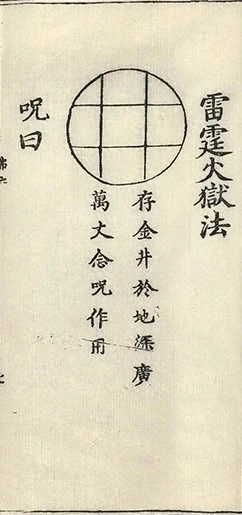 雷霆火獄法
存金井於地深廣
萬丈念呪作用
呪曰